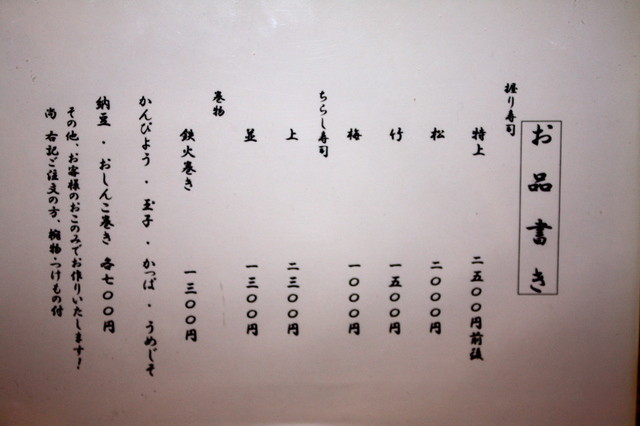 お品書き
握り寿司
特上 二五〇〇円前後
松 二〇〇〇円
竹 一五〇〇円
梅 一〇〇〇円
ちらし寿司
上 二三〇〇円
並 一三〇〇円
巻物
鉄火巻き 一三〇〇円
かんぴょう・玉子・かっぱ・うめじそ
納豆・おしんこ巻き 各七〇〇円
その他、お客様のおこのみでお作りいたします!
尚 右記ご注文の方、椀物・つけもの付